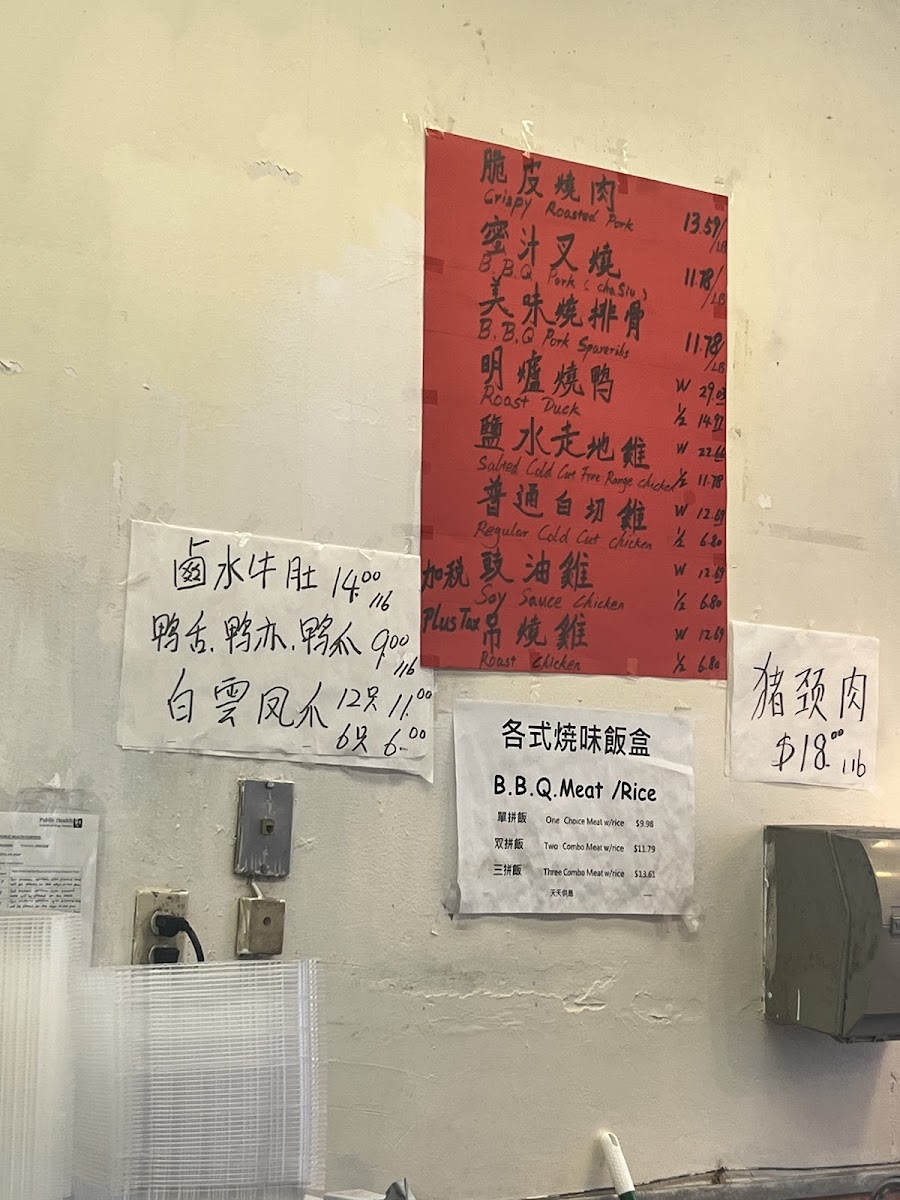 脆皮燒肉
Crispy Roasted Pork 13.59/LB
蜜汁叉燒
B.B.Q Pork (Cha Siu) 11.78/LB
美味燒排骨
B.B.Q Pork Spareribs 11.78/LB
明爐燒鸭 W 29.03
Roast Duck ½ 14.97
鹽水走地雞 W 22.66
Salted Cold Cut Free Range chicken ½ 11.78
普通白切雞 W 12.69
Regular Cold Cut Chicken ½ 6.80
加税 豉油雞 W 12.69
Plus Tax Soy Sauce Chicken ½ 6.80
吊燒雞 W 12.69
Roast Chicken ½ 6.80
鹵水牛肚 14.00 1lb
鸭舌.鸭亦.鸭爪 9.00 1lb
白雲凤爪 12只 11.00
6只 6.00
猪颈肉
$18.00 1lb
各式燒味飯盒
B.B.Q.Meat /Rice
單拼飯 One Choice Meat w/rice $9.98
双拼飯 Two Combo Meat w/rice $11.79
三拼飯 Three Combo Meat w/rice $13.61
天天供應
Public Health